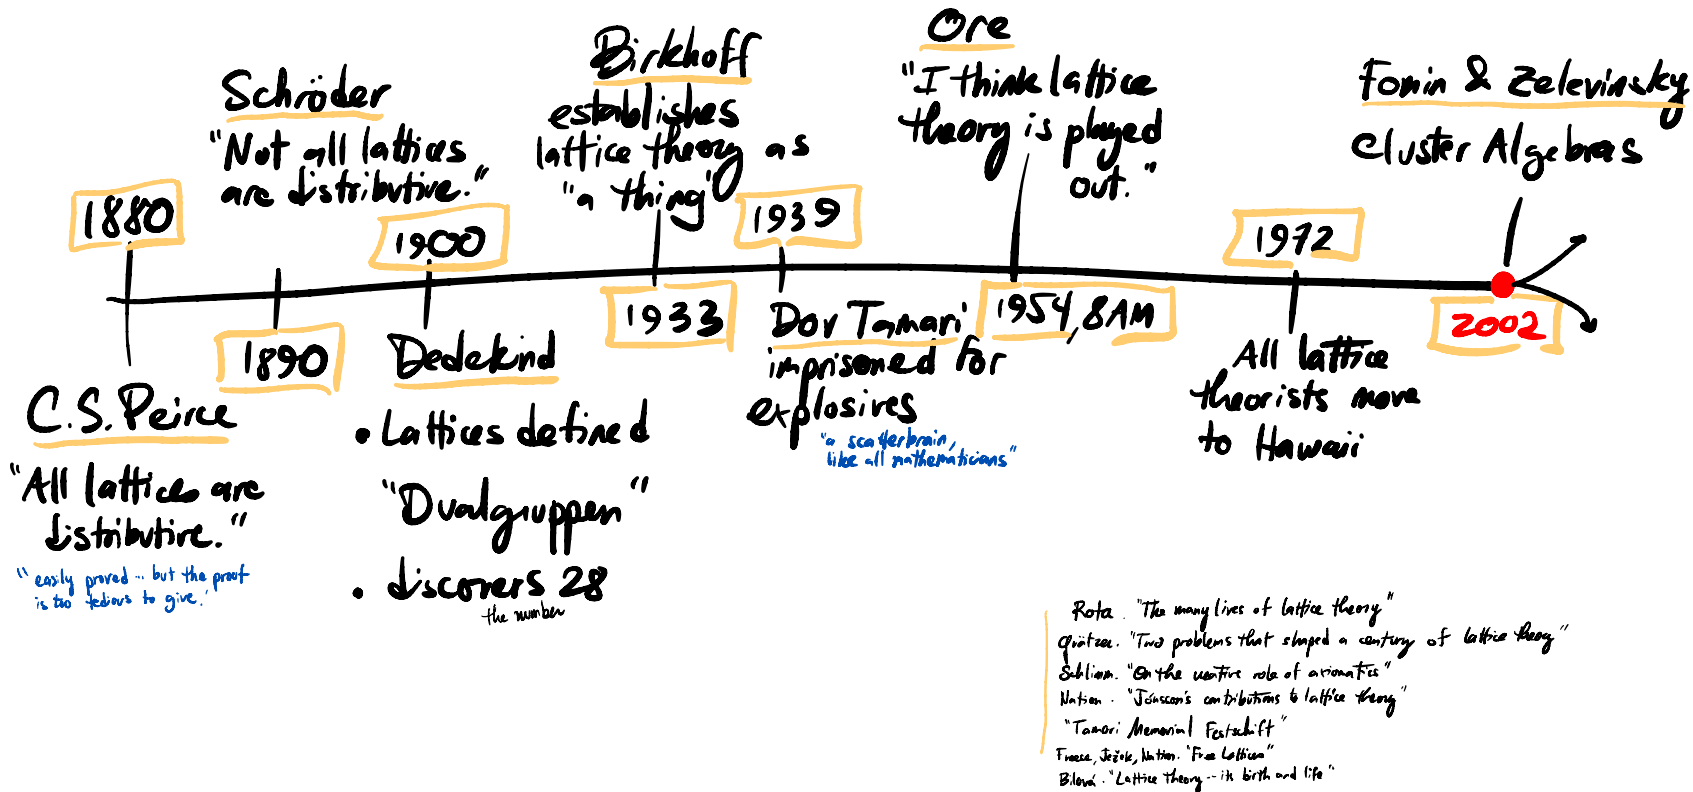 1880
C.S. Peirce
"All lattices are
distributive."
"easily proved ... but the proof
is too tedious to give."
Schröder
"Not all lattices
are distributive."
1890
1900
Dedekind
• Lattices defined
"Dualgruppen"
• discovers 28
the number
Birkhoff
establishes
lattice theory as
"a thing"
1933
1939
Dov Tamari
imprisoned for
explosives
"a scatterbrain,
like all mathematicians"
Ore
"I think lattice
theory is played
out."
1954, 8AM
1972
All lattice
theorists move
to Hawaii
Fomin & Zelevinsky
Cluster Algebras
2002
Rota. "The many lives of lattice theory"
Grätzer. "Two problems that shaped a century of lattice theory"
Schlimm. "On the creative role of axiomatics"
Nation. "Jónsson's contributions to lattice theory"
"Tamari Memorial Festschrift"
Freese, Ježek, Nation. "Free Lattices"
Bilová. "Lattice theory -- its birth and life"